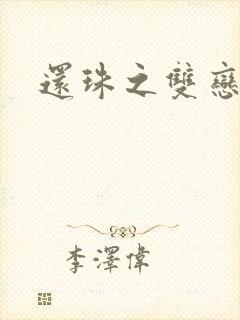 還珠之雙戀
李澤偉